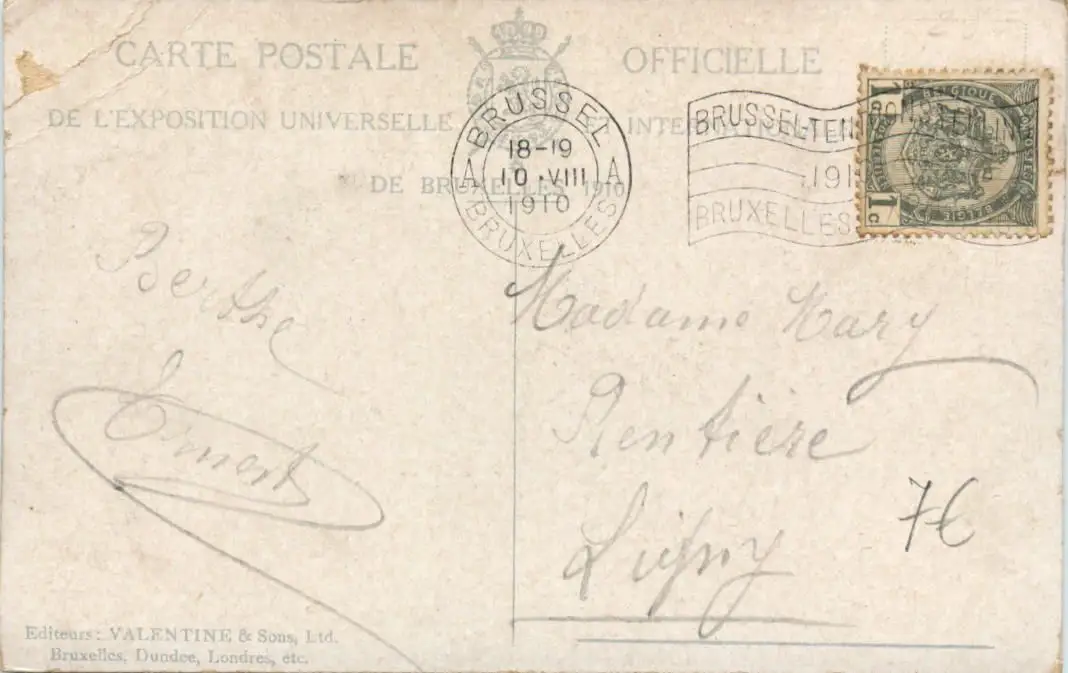 CARTE POSTALE OFFICIELLE
DE L'EXPOSITION UNIVERSELLE ET INTERNATIONALE
DE BRUXELLES 1910
BRUSSEL
18-19
A 10 VIII A
1910
BRUXELLES
BRUSSEL-TENTOONSTELLING
191
BRUXELLES
BELGIQUE
BELGIE
1 1
1c
Berthe
Ernest
Madame Mary
Rentière
Ligny
7€
Editeurs: VALENTINE & Sons, Ltd.
Bruxelles, Dundee, Londres, etc.